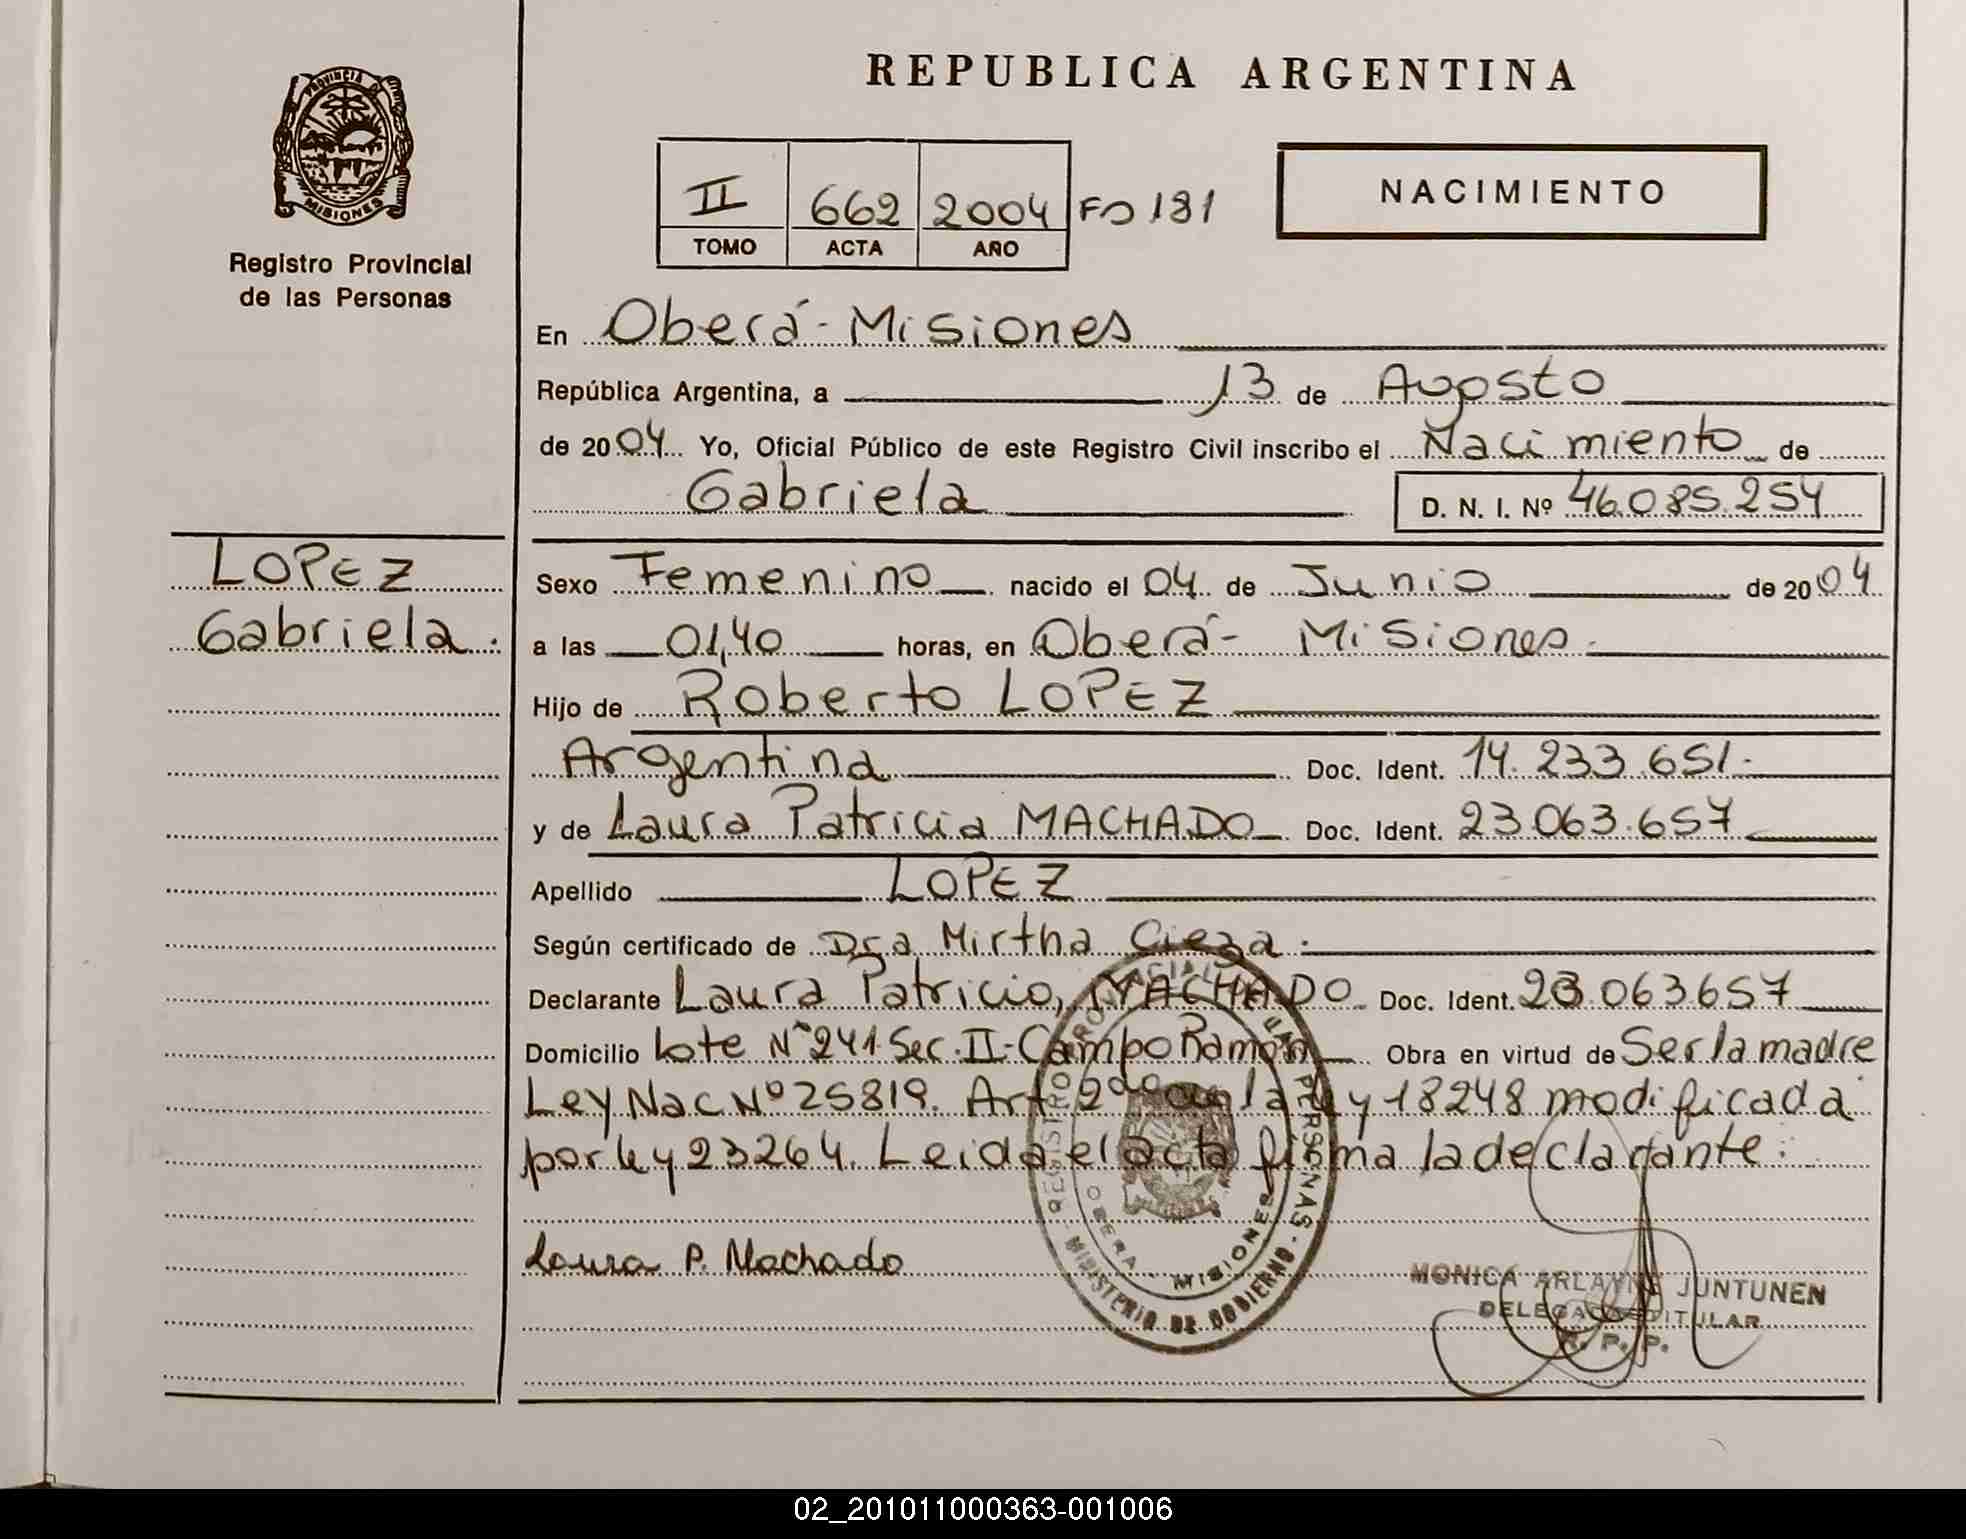 REPUBLICA ARGENTINA
PROVINCIA DE MISIONES
Registro Provincial
de las Personas
II 662 2004 Fº 181
TOMO ACTA AÑO
NACIMIENTO
En Oberá - Misiones
República Argentina, a 13 de Agosto
de 2004 Yo, Oficial Público de este Registro Civil inscribo el Nacimiento de
Gabriela D. N. I. Nº 46.085.254
LOPEZ
Gabriela.
Sexo Femenino nacido el 04 de Junio de 2004
a las 01,40 horas, en Oberá - Misiones.
Hijo de Roberto LOPEZ
Argentina Doc. Ident. 14.233.651.
y de Laura Patricia MACHADO Doc. Ident. 23.063.657
Apellido LOPEZ
Según certificado de Dra Mirtha Cieza.
Declarante Laura Patricia, MACHADO Doc. Ident. 23.063.657
Domicilio Lote Nº 241 Sec. II - Campo Ramón Obra en virtud de Ser la madre
Ley Nac Nº 25819. Art 2º la ley 18248 modificada
por ley 23264. Leida el acta firma la declarante.
Laura P. Machado
REGISTRO PROVINCIAL DE LAS PERSONAS - MINISTERIO DE GOBIERNO -
OBERA MISIONES
MONICA ARLAYNE JUNTUNEN
DELEGADA TITULAR
R. P. P.
02_201011000363-001006